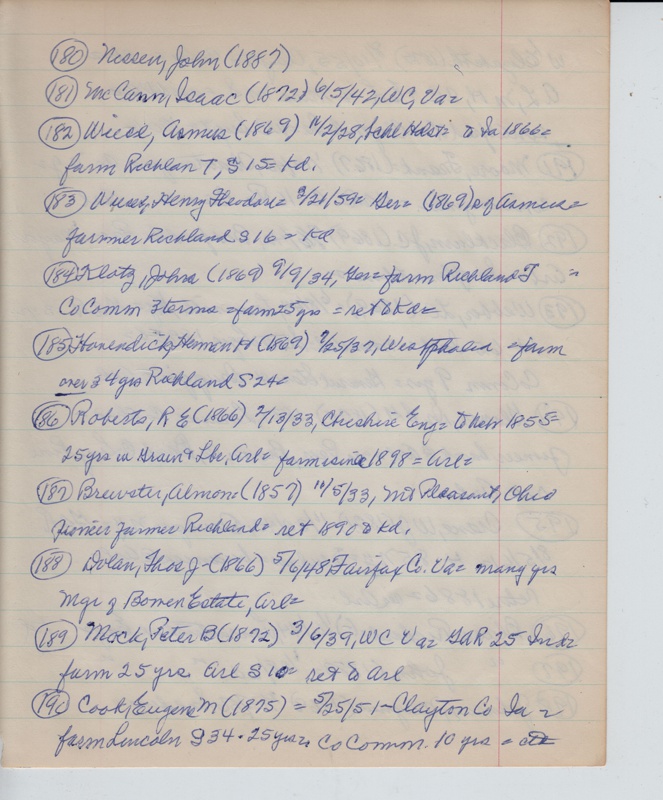 (180) Nissen, John (1887)
(181) McCann, Isaac (1872) 6/5/42, WC, Va=
(182) Asmus (1869) 11/2/28, Schl Hdst= to Ia 1866=
farm Richlan T, S 15= Kd.
(183) Henry Theodore= 3/21/59= Ger= (1869) s of Asmus=
farmer Richland S 16 = Kd
(184) Klotz, John (1869) 9/9/34, Ger= farm Richland T =
Co Comm 3 terms = farm 25 yrs = ret to Kd=
(185) Herman H (1869) /25/37, Westphalia = farm
over 34 yrs Richland S 24=
(186) Roberts, R E (1866) 2/13/33, Cheshire Eng= to Nebr 1855=
25 yrs in Grain & Lbr, Arl= farm since 1898 = Arl=
(187) Brewster, Almon= (1857) 11/5/33, Mt Pleasant, Ohio
Pioneer farmer Richland= ret 1890 to Kd.
(188) Dolan, Thos J- (1866) 5/6/48, Fairfax Co. Va= many yrs
Mgr of Bowen Estate, Arl=
(189) Mock, Peter B (1872) 3/6/39, WC Va= GAR 25 Ind=
farm 25 yrs Arl S 10= ret to Arl
(190) Cook, Eugene M (1875) = 5/25/51- Clayton Co Ia =
farm Lincoln S 34. 25 yrs= Co Comm. 10 yrs =